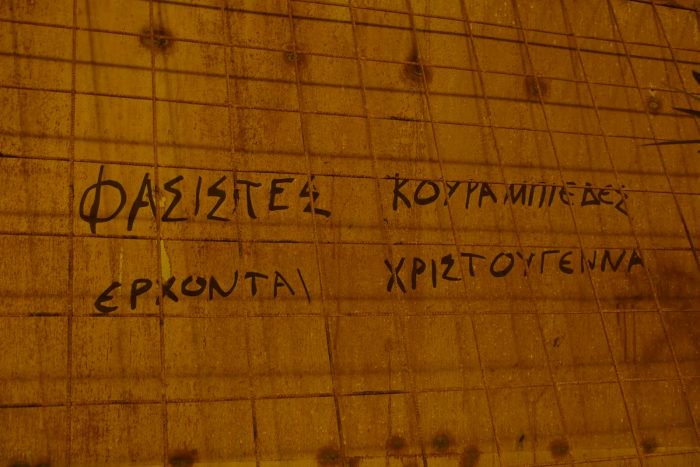 ΦΑΣΙΣΤΕΣ ΚΟΥΡΑΜΠΙΕΔΕΣ
ΕΡΧΟΝΤΑΙ ΧΡΙΣΤΟΥΓΕΝΝΑ